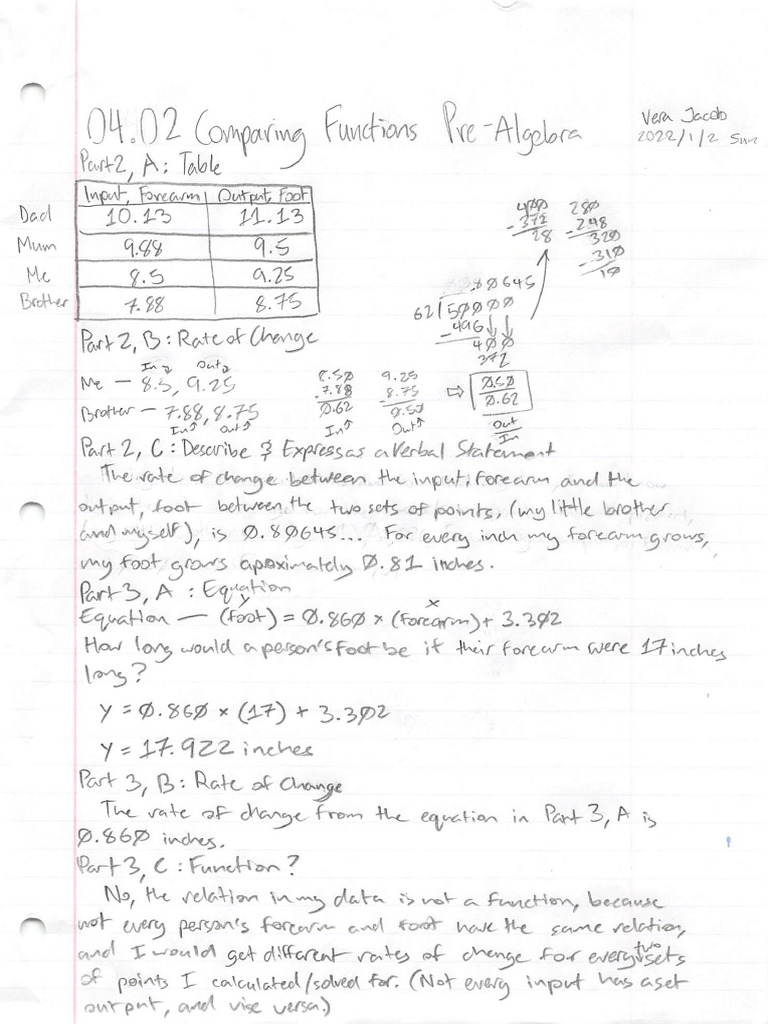 04.02 Comparing Functions Pre-Algebra
Vera Jacob
2022/1/2 Sun
Part 2, A: Table
Input, Forearm Output, Foot
Dad 10.13 11.13
Mum 9.88 9.5
Me 8.5 9.25
Brother 7.88 8.75
400
-372
28
280
-248
320
-310
10
.80645
62 50000
-496
400
372
Part 2, B: Rate of Change
In2 Out2
Me — 8.5, 9.25
Brother — 7.88, 8.75
In↑ Out↑
8.50
-7.88
0.62
In↑
9.25
-8.75
0.50
Out↑
⇨ 0.50
0.62
Out
In
Part 2, C: Describe & Express as a Verbal Statement
The rate of change between the input, forearm and the
output, foot between the two sets of points, (my little brother
and myself), is 0.80645... For every inch my forearm grows,
my foot grows aproximately 0.81 inches.
Part 3, A: Equation
y x
Equation — (foot) = 0.860 × (forearm) + 3.302
How long would a person's foot be if their forearm were 17 inches
long?
y = 0.860 × (17) + 3.302
y = 17.922 inches
Part 3, B: Rate of Change
The rate of change from the equation in Part 3, A is
0.860 inches.
Part 3, C: Function?
No, the relation in my data is not a function, because
not every person's forearm and foot have the same relation,
and I would get different rates of change for every two sets
of points I calculated/solved for. (Not every input has a set
output, and vise versa.)